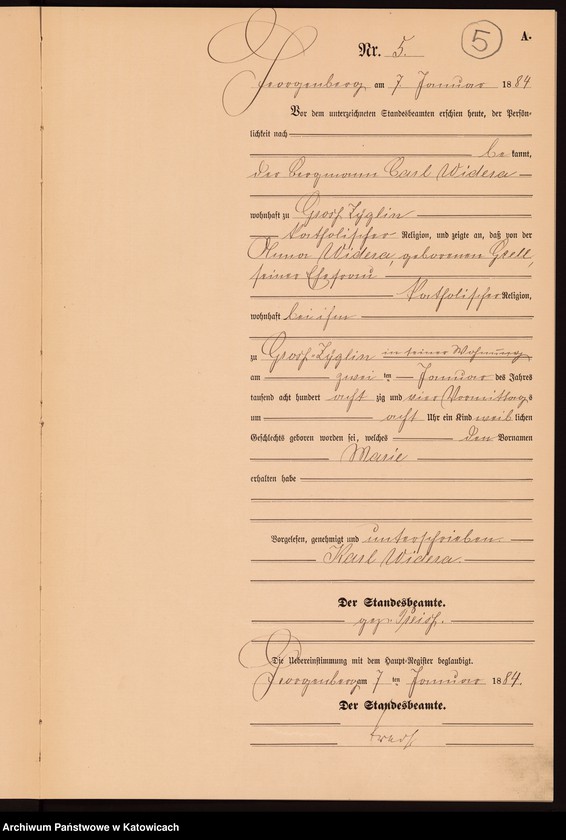 A.
Nr. 5.
5
Georgenberg, am 7 Januar 1884
Vor dem unterzeichneten Standesbeamten erschien heute, der Persön-
lichkeit nach
be kannt,
der Bergmann Carl Widera
wohnhaft zu Groß Zyglin
katholischer Religion, und zeigte an, daß von der
Anna Widera, geborenen
seiner Ehefrau
katholischer Religion,
wohnhaft bei ihm
zu Groß-Zyglin in seiner Wohnung
am zwei ten Januar des Jahres
tausend acht hundert acht zig und vier Vormittags
um acht Uhr ein Kind weib lichen
Geschlechts geboren worden sei, welches den Vornamen
Marie
erhalten habe
Vorgelesen, genehmigt und unterschrieben
Karl Widera
Der Standesbeamte.
gez.
Die Uebereinstimmung mit dem Haupt-Register beglaubigt.
Georgenberg am 7 ten Januar 1884.
Der Standesbeamte.
Archiwum Państwowe w Katowicach